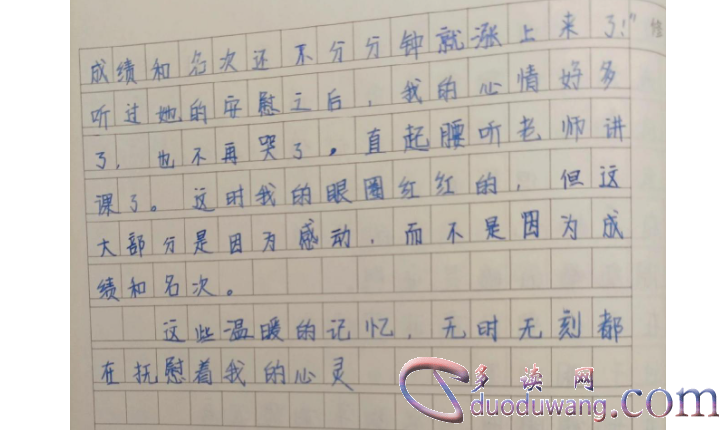 成绩和名次还不分分钟就涨上来了！”
听过她的安慰之后，我的心情好多
了，也不再哭了。直起腰听老师讲
课了。这时我的眼圈红红的，但这
大部分是因为感动，而不是因为成
绩和名次。
这些温暖的记忆，无时无刻都
在抚慰着我的心灵
多读网
duoduwang.com